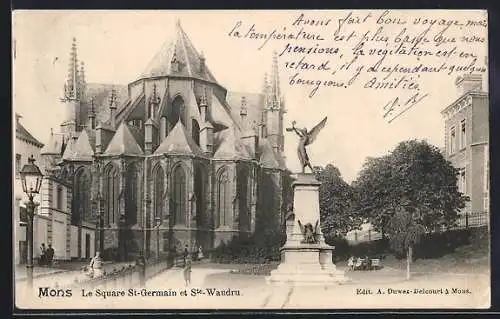 Avons fait bon voyage, mais
la température est plus basse que nous
pensions, la végétation est en
retard, il y a cependant quelques
bourgeons. Amitiés
Mons Le Square St-Germain et Ste-Waudru.
Edit. A. Duwez-Delcourt à Mons.